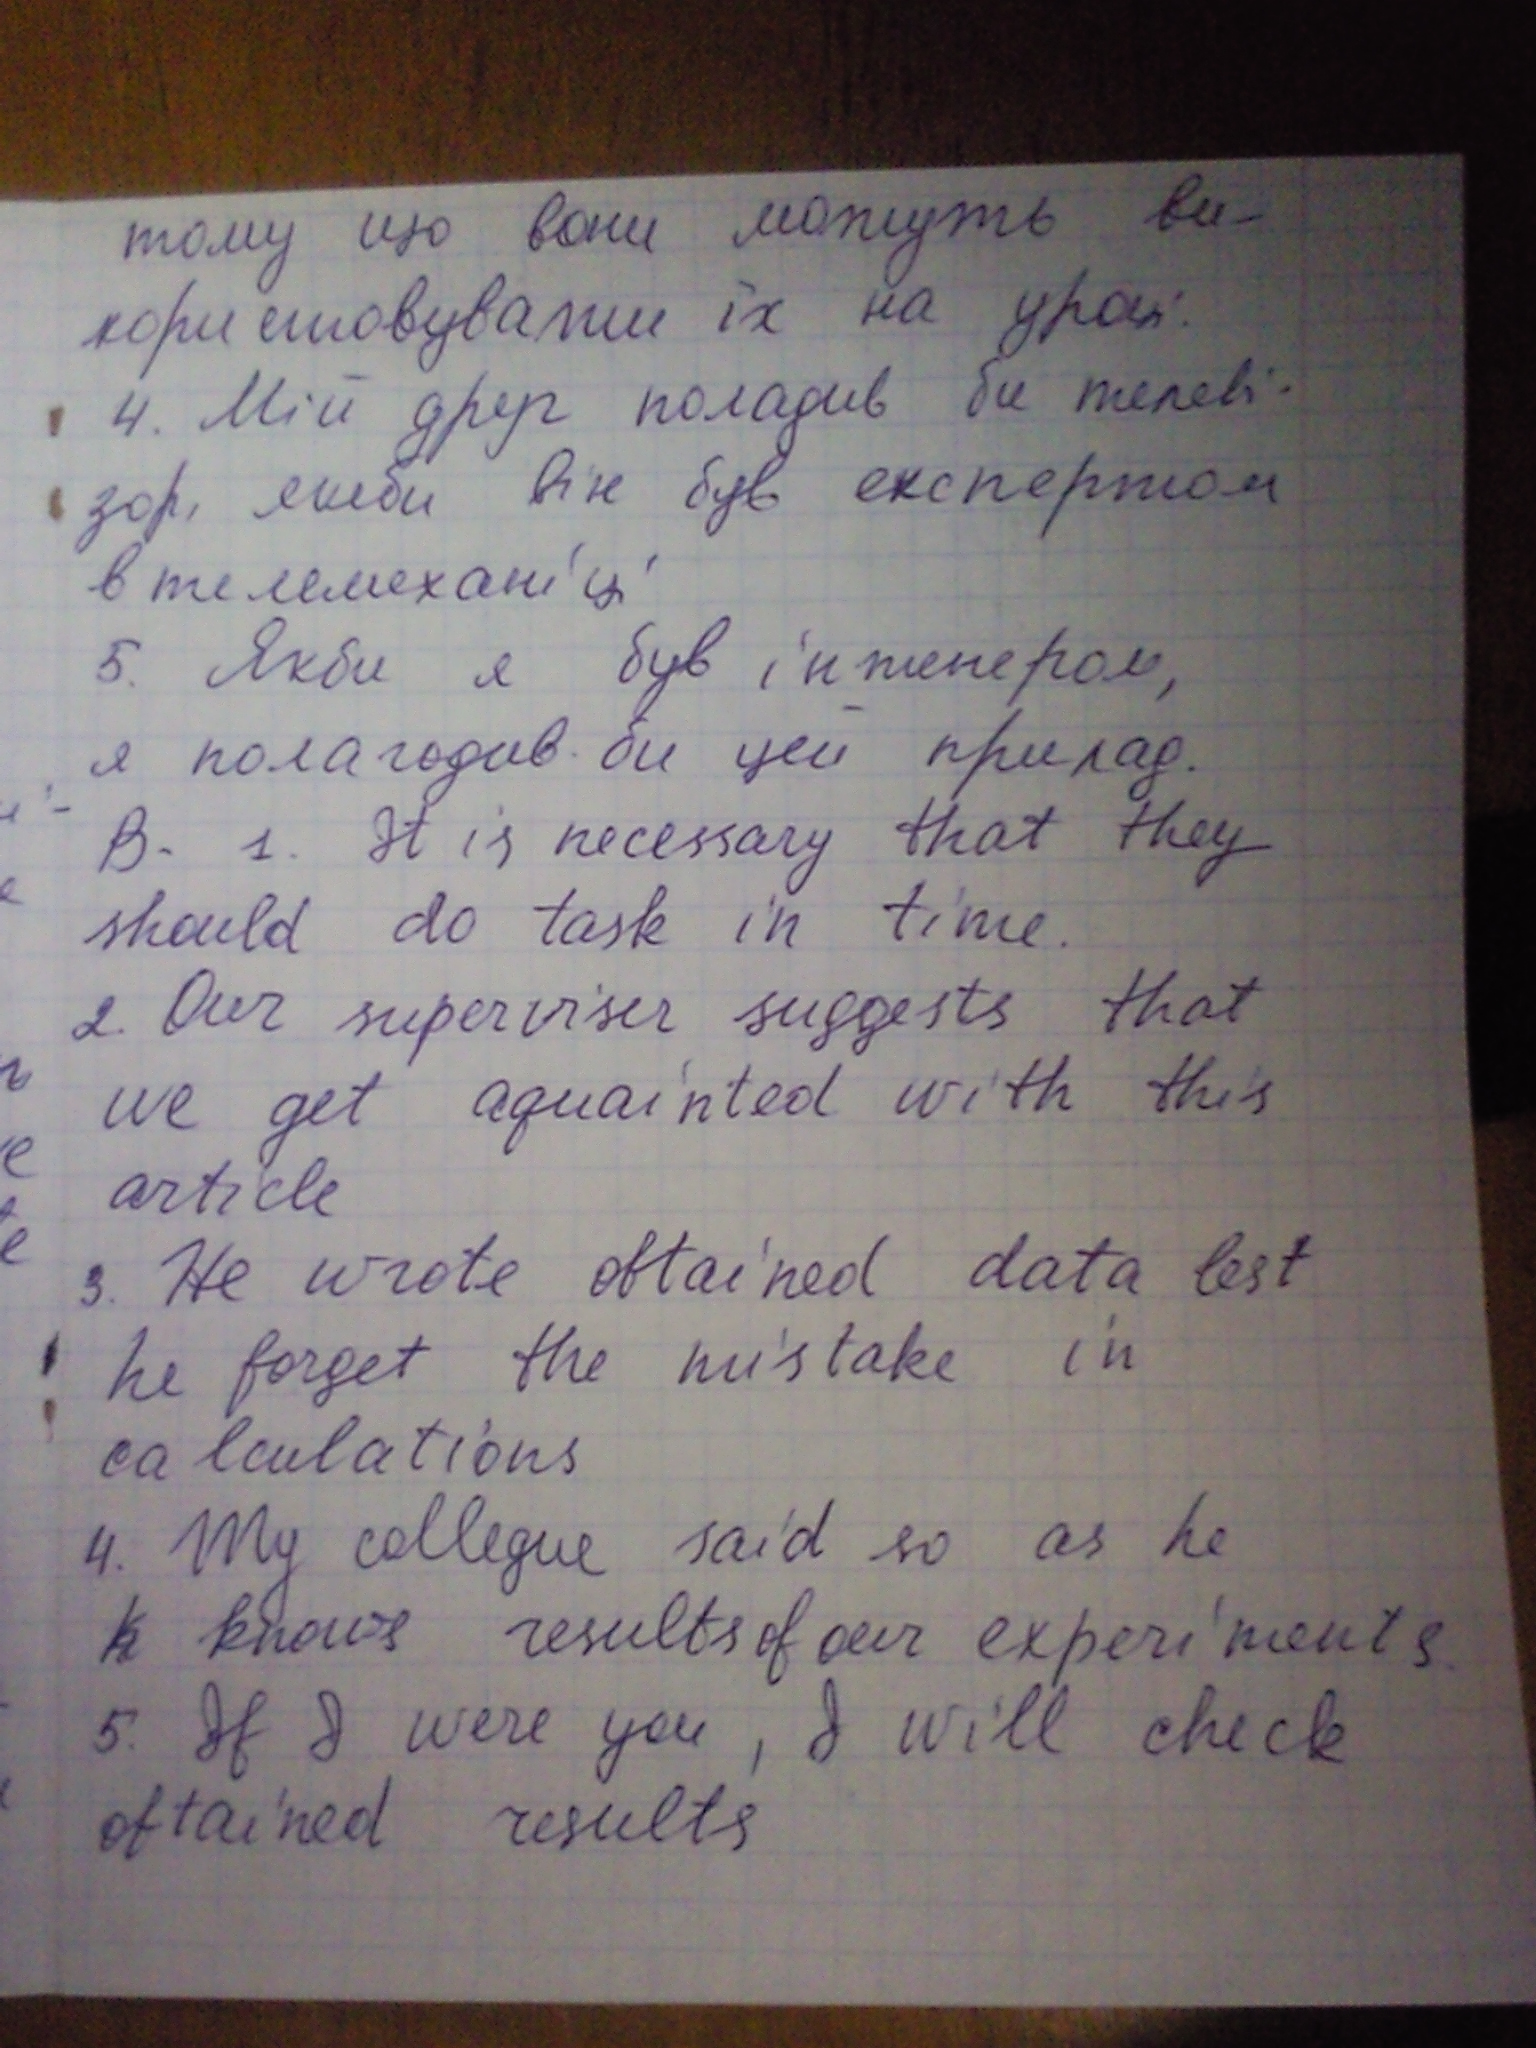 тому що вони можуть ви-
користовувати їх на уроці.
4. Мій друг поладив би телеві-
зор, якби він був експертом
в телемеханіці
5. Якби я був інженером,
я полагодив би цей прилад.
B. 1. It is necessary that they
should do task in time.
2. Our superviser suggests that
we get aquainted with this
article
3. He wrote obtained data lest
he forget the mistake in
calculations
4. My collegue said so as he
k knows results of our experiments.
5. If I were you, I will check
obtained results